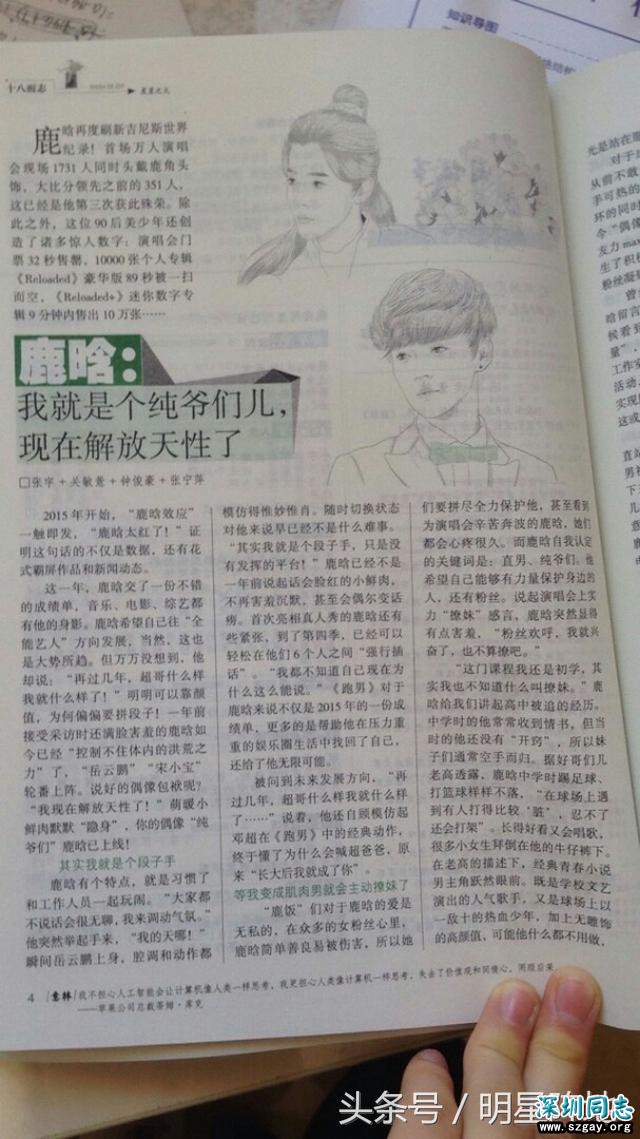 知识导图
十八面志
星星之火
鹿晗再度刷新吉尼斯世界
纪录！首场万人演唱
会现场1731人同时头戴鹿角头
饰，大比分领先之前的351人，
这已经是他第三次获此殊荣。除
此之外，这位90后美少年还创
造了诸多惊人数字：演唱会门
票32秒售罄，10000张个人专辑
《Reloaded》豪华版89秒被一扫
而空，《Reloaded+》迷你数字专
辑9分钟内售出10万张……
鹿晗：
我就是个纯爷们儿，
现在解放天性了
□张宇+关敏薏+钟俊豪+张宁萍
2015年开始，“鹿晗效应”
一触即发，“鹿晗太红了！”证
明这句话的不仅是数据，还有花
式霸屏作品和新闻动态。
这一年，鹿晗交了一份不错
的成绩单，音乐、电影、综艺都
有他的身影。鹿晗希望自己往“全
能艺人”方向发展，当然，这也
是大势所趋。但万万没想到，他
却说：“再过几年，超哥什么样
我就什么样了！”明明可以靠颜
值，为何偏偏要拼段子！一年前
接受采访时还满脸害羞的鹿晗如
今已经“控制不住体内的洪荒之
力”了，“岳云鹏”“宋小宝”
轮番上阵。说好的偶像包袱呢？
“我现在解放天性了！”萌暖小
鲜肉默默“隐身”，你的偶像“纯
爷们”鹿晗已上线！
其实我就是个段子手
鹿晗有个特点，就是习惯了
和工作人员一起玩闹。“大家都
不说话会很无聊，我来调动气氛。”
他突然举起手来，“我的天哪！”
瞬间岳云鹏上身，腔调和动作都
模仿得惟妙惟肖。随时切换状态
对他来说早已经不是什么难事。
“其实我就是个段子手，只是没
有发挥的平台！”鹿晗已经不是
一年前说起话会脸红的小鲜肉，
不再害羞沉默，甚至会偶尔变话
痨。首次亮相真人秀的鹿晗还有
些紧张，到了第四季，已经可以
轻松在他们6个人之间“强行插
话”。“我都不知道自己现在为
什么这么能说。”《跑男》对于
鹿晗来说不仅是2015年的一份成
绩单，更多的是帮助他在压力重
重的娱乐圈生活中找回了自己，
还给了他无限可能。
被问到未来发展方向，“再
过几年，超哥什么样我就什么样
了……”说着，他还自顾模仿起
邓超在《跑男》中的经典动作，
终于懂了为什么会喊超爸爸，原
来“长大后我就成了你”。
等我变成肌肉男就会主动撩妹了
“鹿饭”们对于鹿晗的爱是
无私的，在众多的女粉丝心里，
鹿晗简单善良易被伤害，所以她
们要拼尽全力保护他，甚至看到
为演唱会辛苦奔波的鹿晗，她们
都会心疼很久。而鹿晗自我认定
的关键词是：直男、纯爷们。他
希望自己能够有力量保护身边的
人，还有粉丝。说起演唱会上实
力“撩妹”感言，鹿晗突然显得
有点害羞，“粉丝欢呼，我就兴
奋了，也不算撩吧。”
“这门课程我还是初学，其
实我也不知道什么叫撩妹。”鹿
晗给我们讲起高中被追的经历。
中学时的他常常收到情书，但当
时的他还没有“开窍”，所以妹
子们通常空手而归。据好哥们儿
老高透露，鹿晗中学时踢足球、
打篮球样样不落，“在球场上遇
到有人打得比较‘脏’，忍不了
还会打架”。长得好看又会唱歌，
很多小女生拜倒在他的牛仔裤下。
在老高的描述下，经典青春小说
男主角跃然眼前。既是学校文艺
演出的人气歌手，又是球场上以
一敌十的热血少年，加上无雕饰
的高颜值，可能他什么都不用做，
4 /意林/我不担心人工智能会让计算机像人类一样思考，我更担心人类像计算机一样思考，失去了价值观和同情心，罔顾后果。
——苹果公司总裁蒂姆·库克
光是站在
对于
从前不敢
手可热的
环的同时
今“偶像
友力max
生了积极
粉丝凝
曾
晗留言
候看到
量”，
工作室
活动、
实现
这或
直
男
下
儿
头条号／明星
深圳同志
www.szgay.org